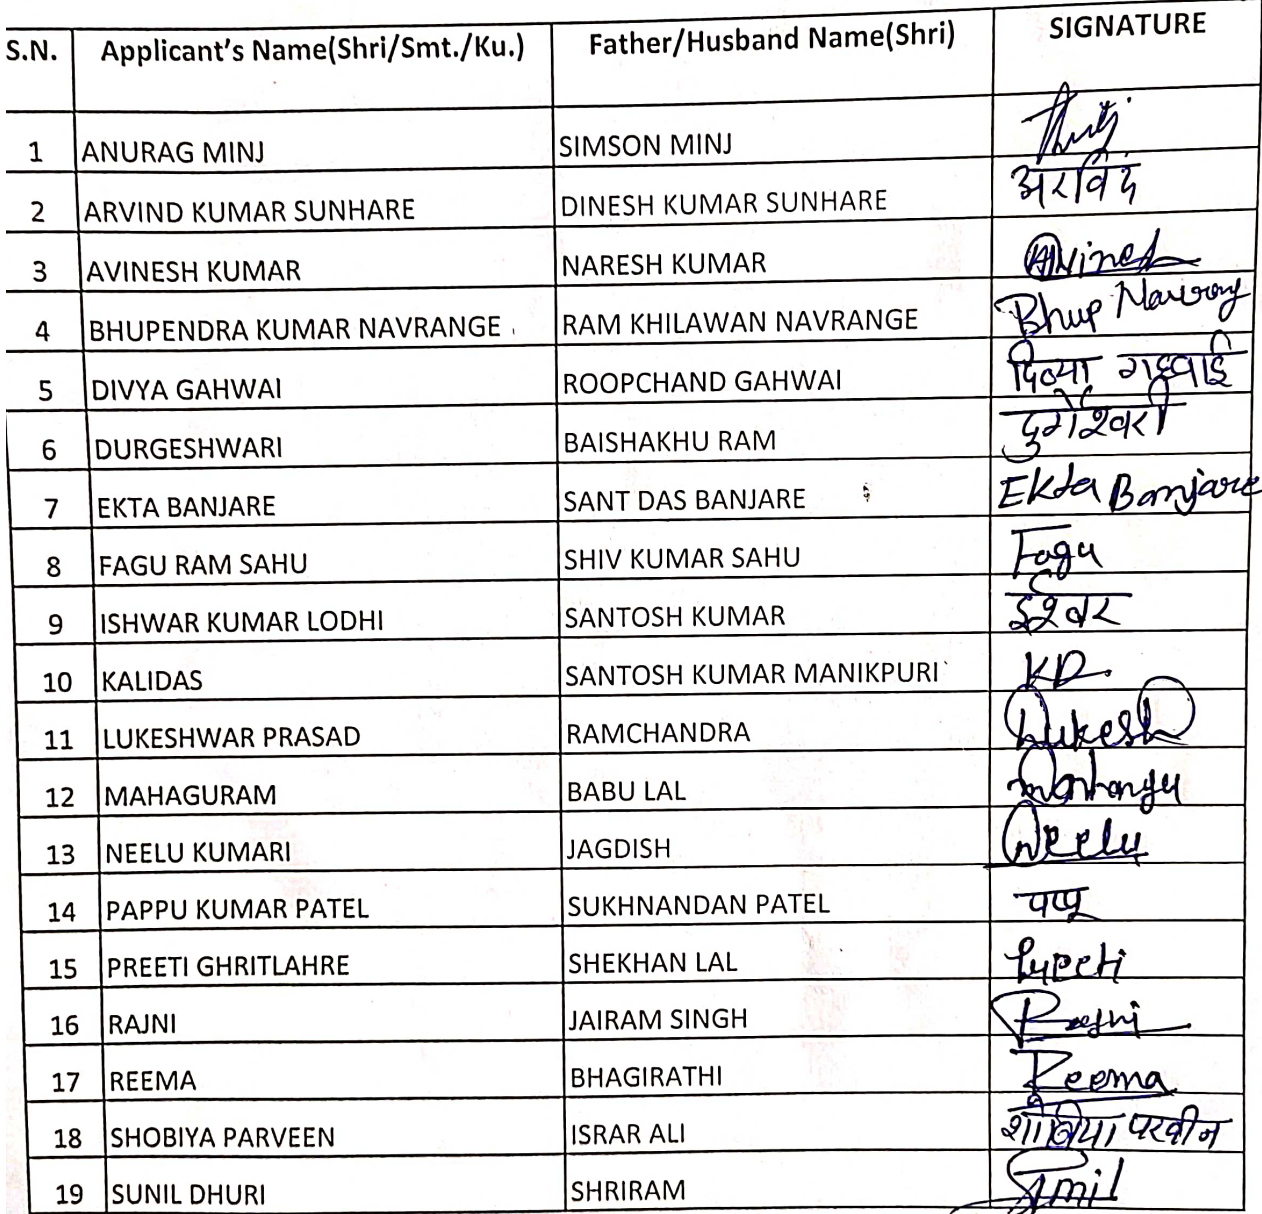 S.N. Applicant's Name(Shri/Smt./Ku.) Father/Husband Name(Shri) SIGNATURE
1 ANURAG MINJ SIMSON MINJ
2 ARVIND KUMAR SUNHARE DINESH KUMAR SUNHARE अरविंद
3 AVINESH KUMAR NARESH KUMAR Avinesh
4 BHUPENDRA KUMAR NAVRANGE RAM KHILAWAN NAVRANGE Bhup
5 DIVYA GAHWAI ROOPCHAND GAHWAI दिव्या गहवाई
6 DURGESHWARI BAISHAKHU RAM दुर्गेश्वरी
7 EKTA BANJARE SANT DAS BANJARE Ekta Banjare
8 FAGU RAM SAHU SHIV KUMAR SAHU Fagu
9 ISHWAR KUMAR LODHI SANTOSH KUMAR ईश्वर
10 KALIDAS SANTOSH KUMAR MANIKPURI KD.
11 LUKESHWAR PRASAD RAMCHANDRA Lukesh
12 MAHAGURAM BABU LAL
13 NEELU KUMARI JAGDISH Neelu
14 PAPPU KUMAR PATEL SUKHNANDAN PATEL पप्पू
15 PREETI GHRITLAHRE SHEKHAN LAL Preeti
16 RAJNI JAIRAM SINGH Rajni
17 REEMA BHAGIRATHI Reema
18 SHOBIYA PARVEEN ISRAR ALI शोबिया परवीन
19 SUNIL DHURI SHRIRAM Sunil